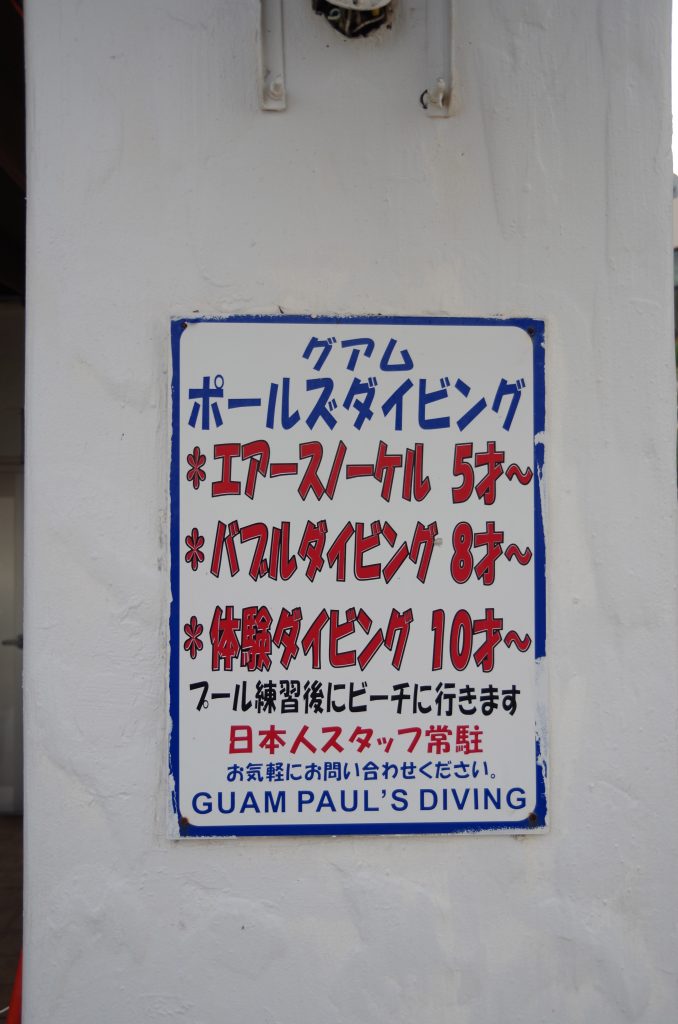 グアム
ポールズダイビング
*エアースノーケル 5才~
*バブルダイビング 8才~
*体験ダイビング 10才~
プール練習後にビーチに行きます
日本人スタッフ常駐
お気軽にお問い合わせください。
GUAM PAUL'S DIVING